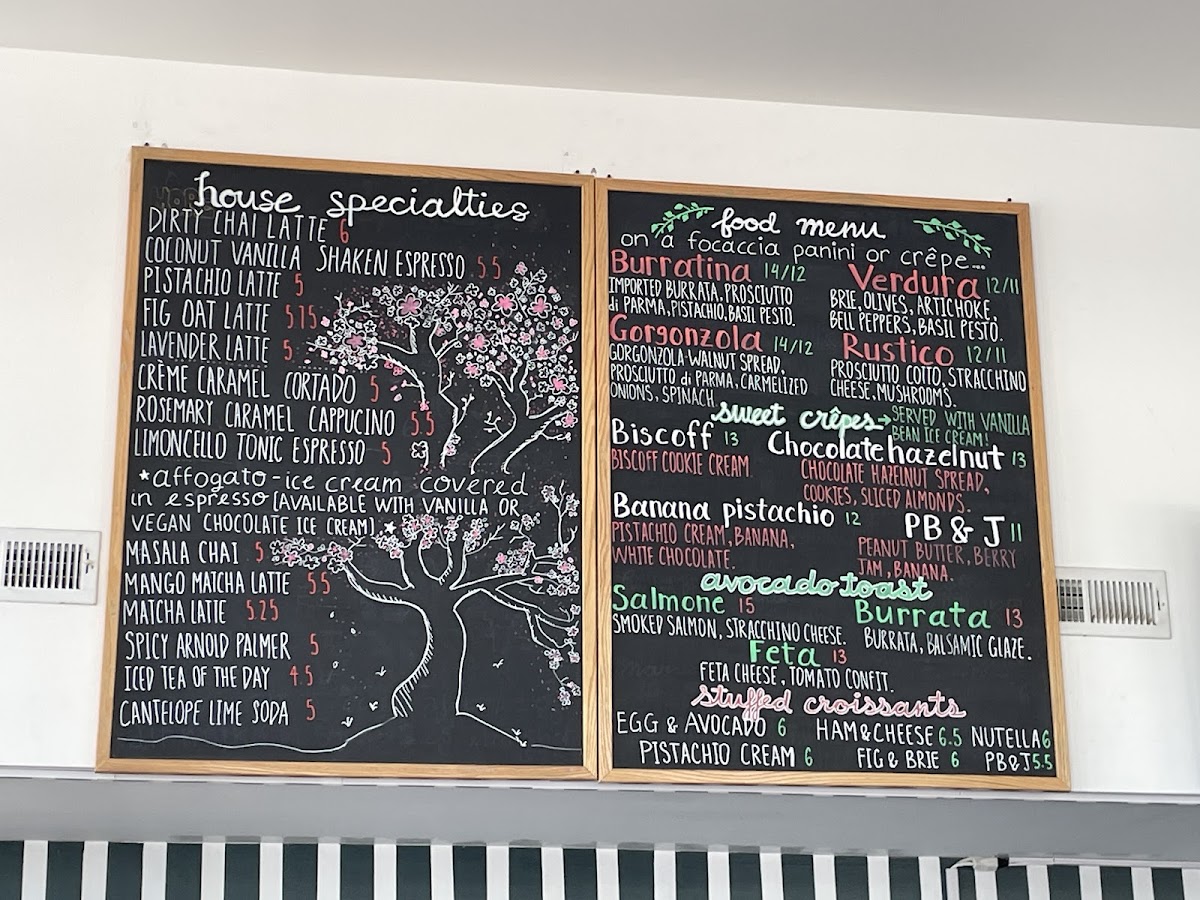 house specialties
DIRTY CHAI LATTE 6
COCONUT VANILLA SHAKEN ESPRESSO 5.5
PISTACHIO LATTE 5
FIG OAT LATTE 5.75
LAVENDER LATTE 5
CRÈME CARAMEL CORTADO 5
ROSEMARY CARAMEL CAPPUCINO 5.5
LIMONCELLO TONIC ESPRESSO 5
*affogato-ice cream covered
in espresso [AVAILABLE WITH VANILLA OR
VEGAN CHOCOLATE ICE CREAM].*
MASALA CHAI 5
MANGO MATCHA LATTE 5.5
MATCHA LATTE 5.25
SPICY ARNOLD PALMER 5
ICED TEA OF THE DAY 4.5
CANTELOPE LIME SODA 5
food menu
on a focaccia panini or crêpe...
Burratina 14/12
IMPORTED BURRATA, PROSCIUTTO
di PARMA, PISTACHIO, BASIL PESTO.
Verdura 12/11
BRIE, OLIVES, ARTICHOKE,
BELL PEPPERS, BASIL PESTO.
Gorgonzola 14/12
GORGONZOLA-WALNUT SPREAD,
PROSCIUTTO di PARMA, CARMELIZED
ONIONS, SPINACH
Rustico 12/11
PROSCIUTO COTTO, STRACCHINO
CHEESE, MUSHROOMS.
sweet crêpes → SERVED WITH VANILLA
BEAN ICE CREAM!
Biscoff 13
BISCOFF COOKIE CREAM
Chocolate hazelnut 13
CHOCOLATE HAZELNUT SPREAD,
COOKIES, SLICED ALMONDS.
Banana pistachio 12
PISTACHIO CREAM, BANANA,
WHITE CHOCOLATE.
PB & J 11
PEANUT BUTTER, BERRY
JAM, BANANA.
avocado toast
Salmone 15
SMOKED SALMON, STRACCHINO CHEESE.
Burrata 13
BURRATA, BALSAMIC GLAZE.
Feta 13
FETA CHEESE, TOMATO CONFIT.
stuffed croissants
EGG & AVOCADO 6 HAM & CHEESE 6.5 NUTELLA 6
PISTACHIO CREAM 6 FIG & BRIE 6 PB&J 5.5